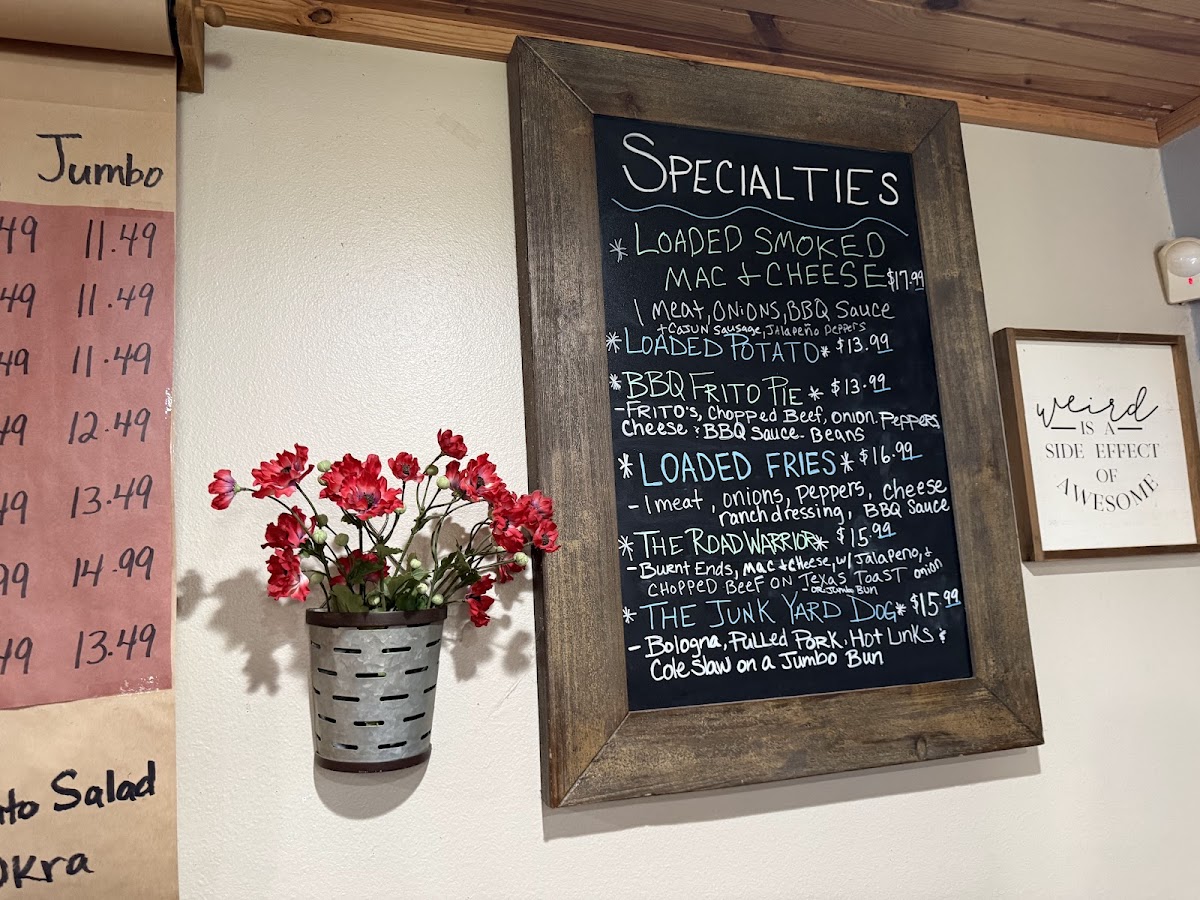 Jumbo
49 11.49
49 11.49
49 11.49
49 12.49
49 13.49
99 14.99
49 13.49
Salad
Okra
SPECIALTIES
* LOADED SMOKED
MAC & CHEESE $17.99
1 Meat, ONIONS, BBQ Sauce
+ CAJUN Sausage, JALAPEÑO PEPPERS
* LOADED POTATO * $13.99
* BBQ FRITO PIE * $13.99
- FRITO'S, CHOPPED Beef, ONION. PEPPERS
Cheese & BBQ Sauce - Beans
* LOADED FRIES * $16.99
- 1 meat, onions, peppers, cheese
ranch dressing, BBQ Sauce
* THE ROAD WARRIOR * $15.99
- Burnt Ends, MAC & cHeese, w/ JALAPENO, &
CHOPPED BEEF ON TEXAS TOAST onion
- OR Jumbo BUN
* THE JUNK YARD DOG * $15.99
- Bologna, Pulled PORK, Hot Links &
Cole Slaw on a Jumbo Bun
weird
IS A
SIDE EFFECT
OF
AWESOME